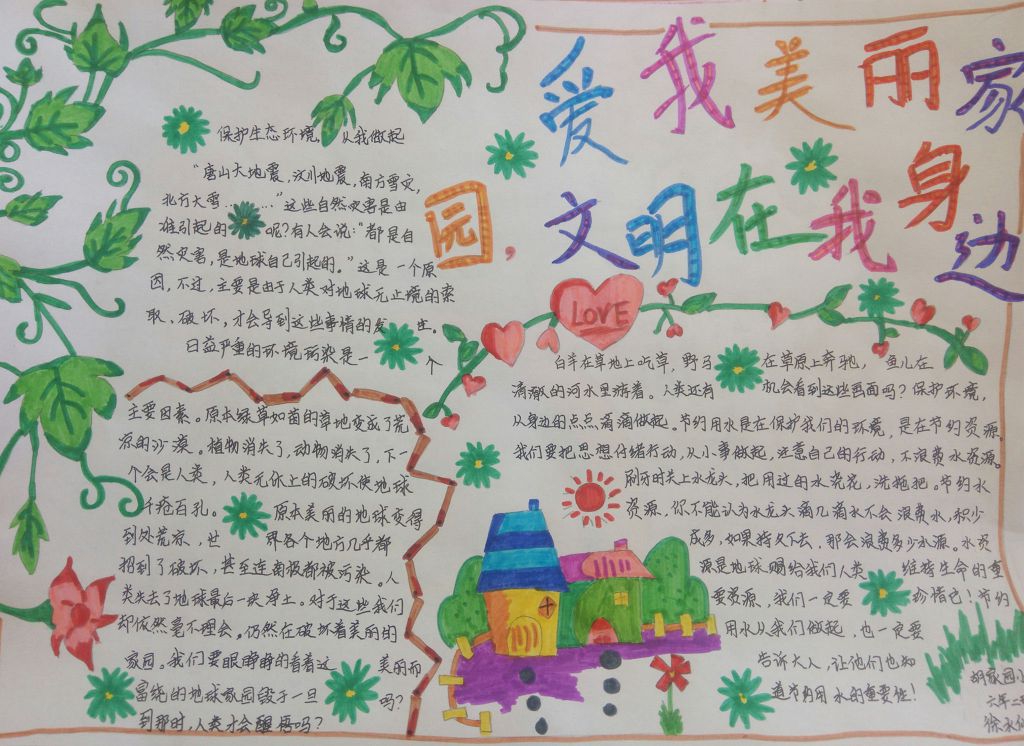 爱我美丽家
园，文明在我身边
保护生态环境，从我做起
“唐山大地震，汶川地震，南方雪灾，
北方大雪……”这些自然灾害是由
谁引起的呢？有人会说：“都是自
然灾害，是地球自己引起的。”这是一个原
因，不过，主要是由于人类对地球无止境的索
取、破坏，才会导到这些事情的发生。
日益严重的环境污染是一个
主要因素。原本绿草如茵的草地变成了荒
凉的沙漠。植物消失了，动物消失了，下一
个会是人类，人类无休止的破坏使地球
千疮百孔。原本美丽的地球变得
到处荒凉，世界各个地方几乎都
招到了破坏，甚至连南极都被污染。人
类失去了地球最后一块净土。对于这些我们
却依然毫不理会。仍然在破坏着美丽的
家园。我们要眼睁睁的看着这美丽而
富饶的地球家园毁于一旦吗？
到那时，人类才会醒悟吗？
LOVE
白羊在草地上吃草，野马在草原上奔驰，鱼儿在
清澈的河水里游着。人类还有机会看到这些画面吗？保护环境，
从身边的点点滴滴做起。节约用水是在保护我们的环境，是在节约资源。
我们要把思想付诸行动，从小事做起，注意自己的行动，不浪费水资源。
刷牙时关上水龙头，把用过的水浇花，洗拖把。节约水
资源，你不能认为水龙头滴几滴水不会浪费水，积少
成多，如果持久下去，那会浪费多少水源。水资
源是地球赐给我们人类维持生命的重
要资源，我们一定要珍惜它！节约
用水从我们做起，也一定要
告诉大人，让他们也知
道节约用水的重要性！
胡家园小
六年二
徐永